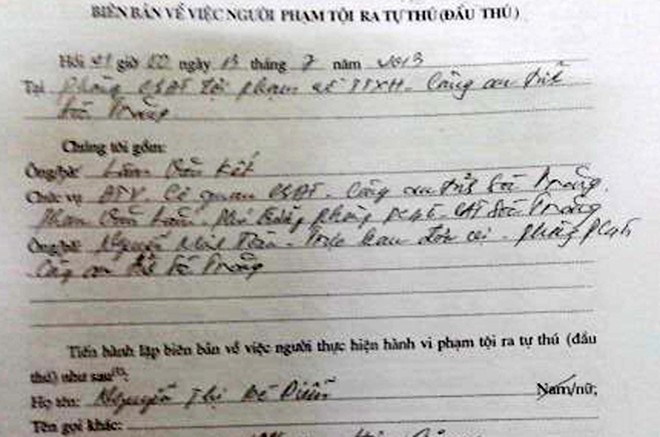 BIÊN BẢN VỀ VIỆC NGƯỜI PHẠM TỘI RA TỰ THÚ (ĐẦU THÚ)
Hồi 21 giờ 00 ngày 13 tháng 7 năm 2013
Tại Phòng CSĐT tội phạm về TTXH - Công an tỉnh
Sóc Trăng
Chúng tôi gồm:
Ông/bà: Lâm Văn Kết
Chức vụ ĐTV - Cơ quan CSĐT - Công an tỉnh Sóc Trăng.
Phạm Văn - Phó trưởng phòng PC45 - CA Sóc Trăng
Ông/bà: Nguyễn Trực ban - phòng PC45
Công an tỉnh Sóc Trăng
Tiến hành lập biên bản về việc người thực hiện hành vi phạm tội ra tự thú (đầu
thú) như sau(1):
Họ tên: Nguyễn Thị Bé Diễm Nam/nữ;
Tên gọi khác: